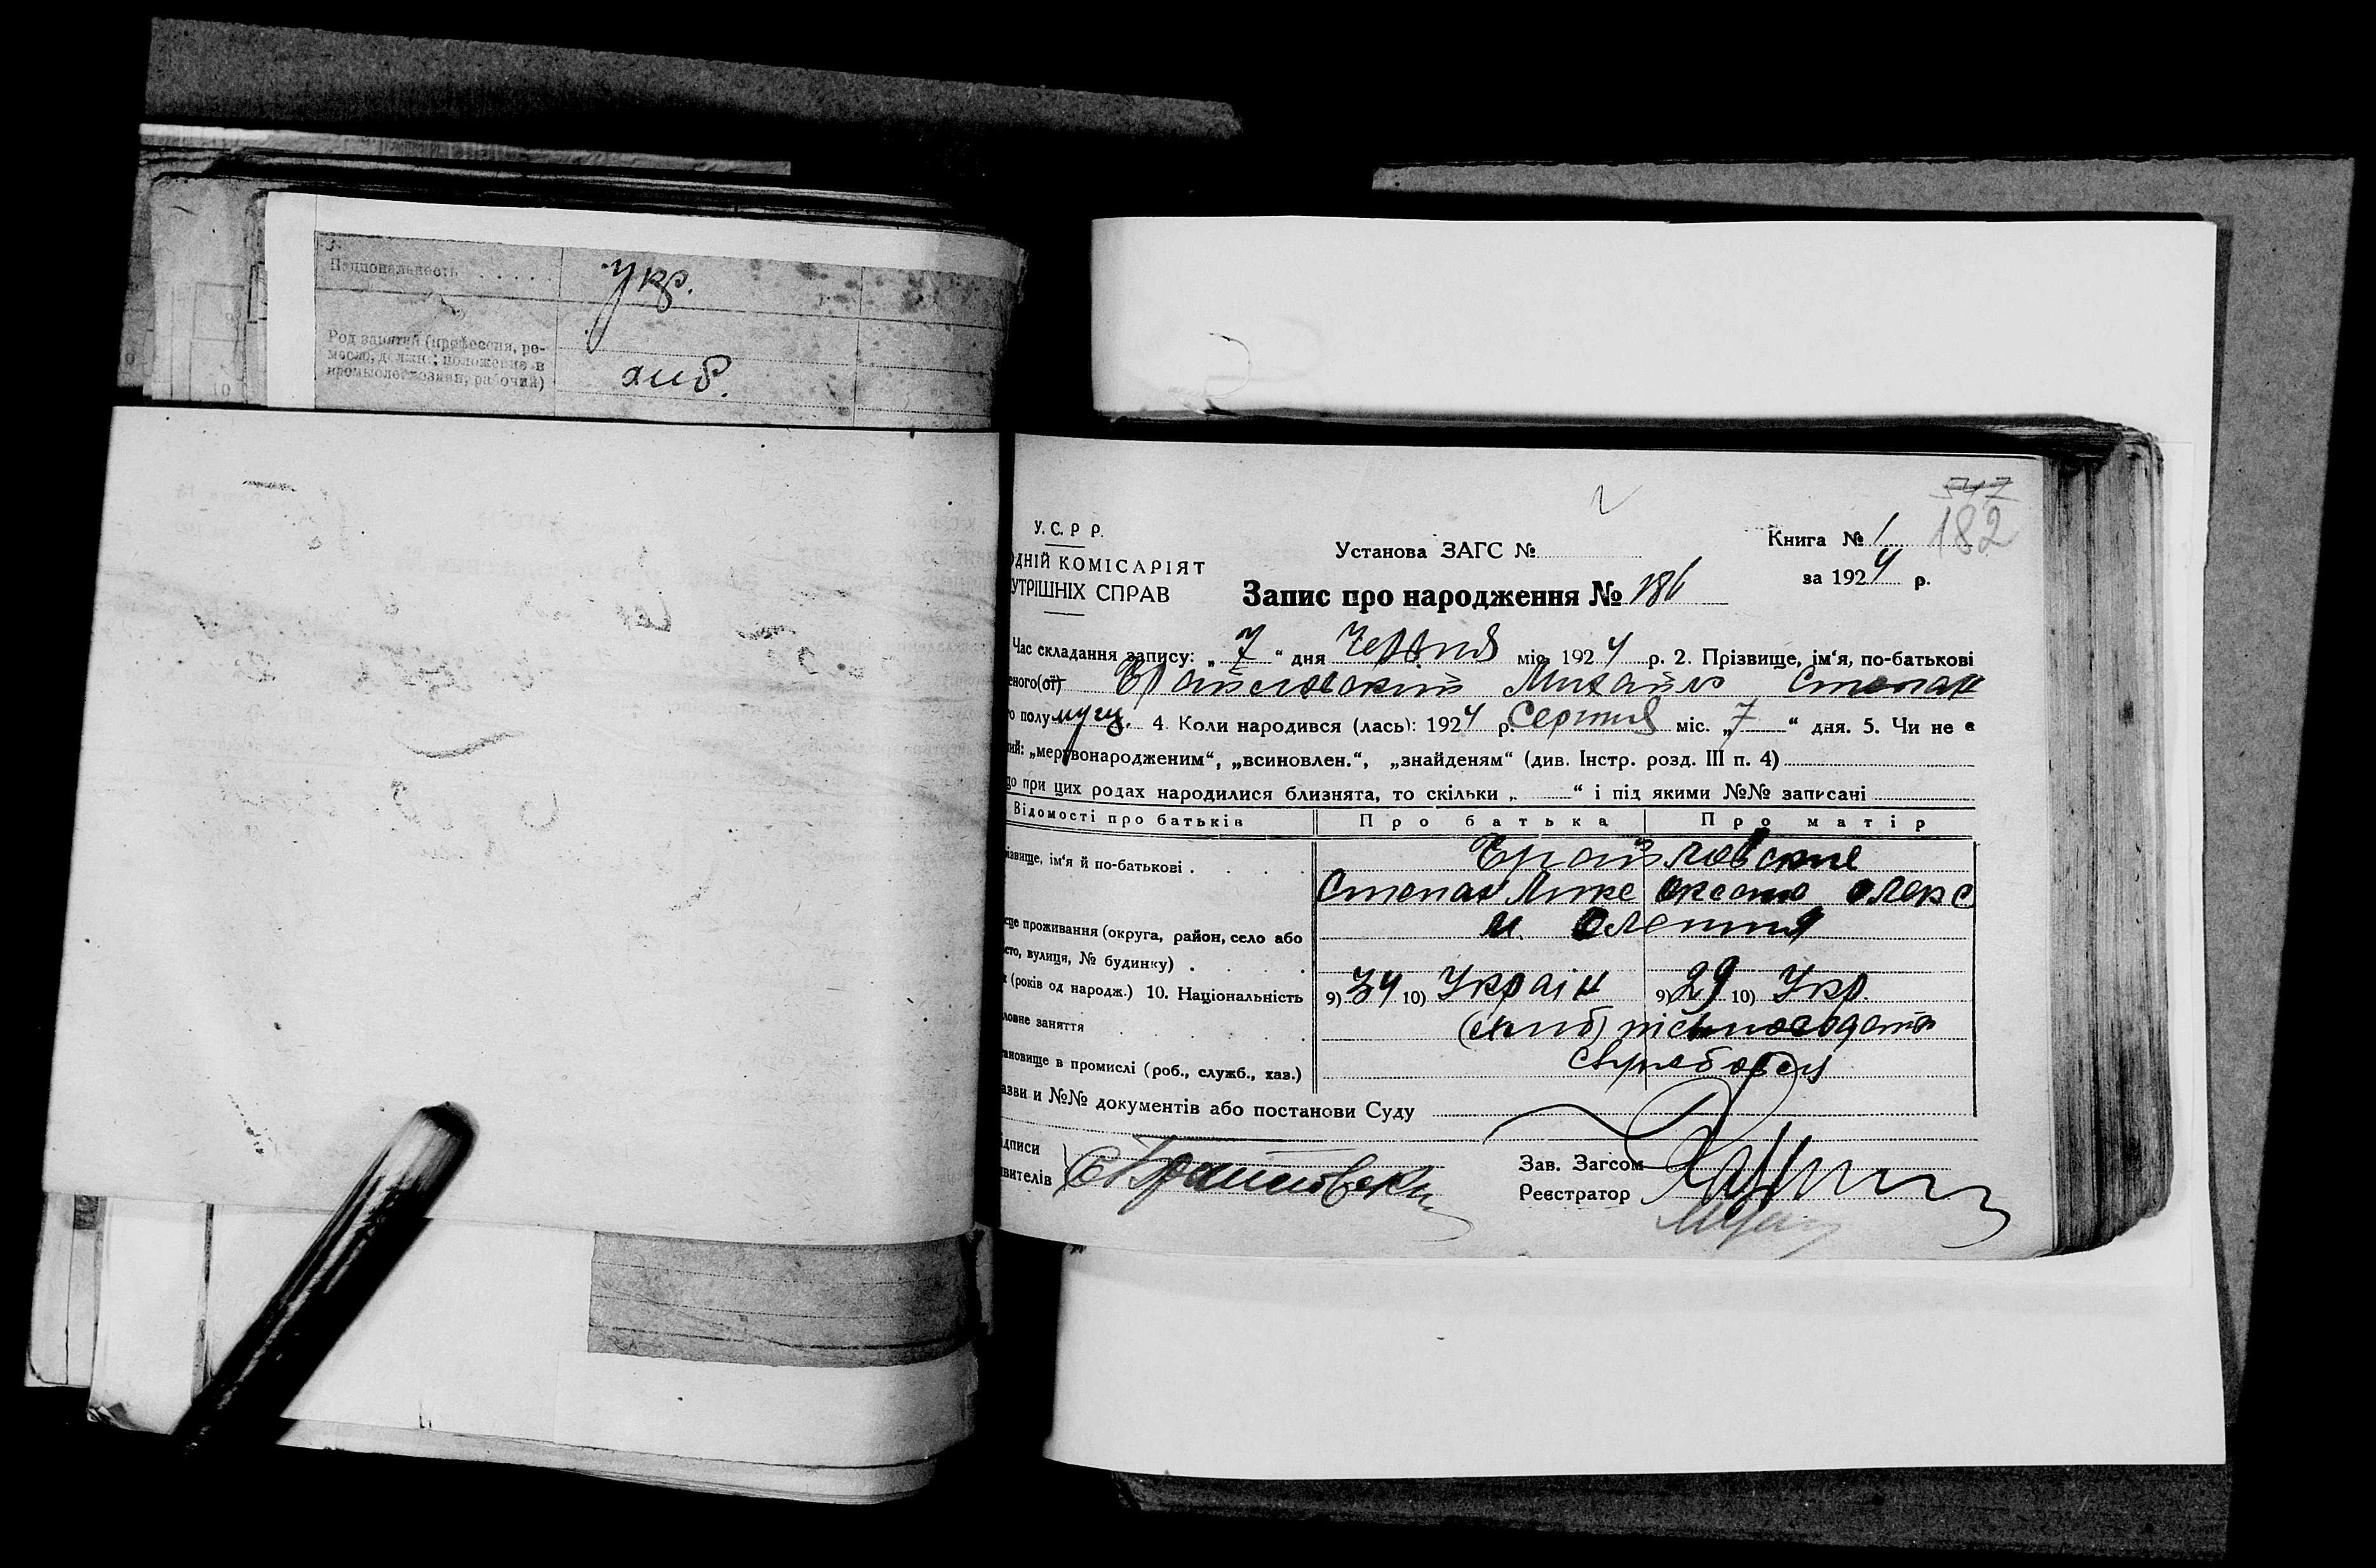 Национальность
укр.
Род занятий (профессия, ре-
месло, должн.; положение в
промысле: хозяин, рабочий)
хліб.
10
547
182
У.С.Р Р.
ДНІЙ КОМІСАРІЯТ
УТРІШНІХ СПРАВ
Установа ЗАГС №
Книга № 1
за 1924 р.
Запис про народження № 186
Час складання запису: „ 7 “ дня Червня міс. 1924 р. 2. Прізвище, ім‘я, по-батькові
еного(ої) Михайло Степан
о полу муж. 4. Коли народився (лась): 1924 р. Серпня міс. „ 7 “ дня. 5. Чи не є
ий: „мертвонародженим“, „всиновлен.“, „знайденям“ (див. Інстр. розд. III п. 4)
о при цих родах народилися близнята, то скільки „ “ і під якими №№ записані
Відомості про батьків Про батька Про матір
ізвище, ім‘я й по-батькові
Степан Мике Оксана Олекс
сце проживання (округа, район, село або м. Олешня
сто, вулиця, № будинку)
(років од народж.) 10. Національність 9) 34 10) Україн 9) 29 10) Укр.
ловне заняття (хліб)
ановище в промислі (роб., служб., хаз.)
азви и №№ документів або постанови Суду
ідписи
явителів
Зав. Загсом
Реєстратор